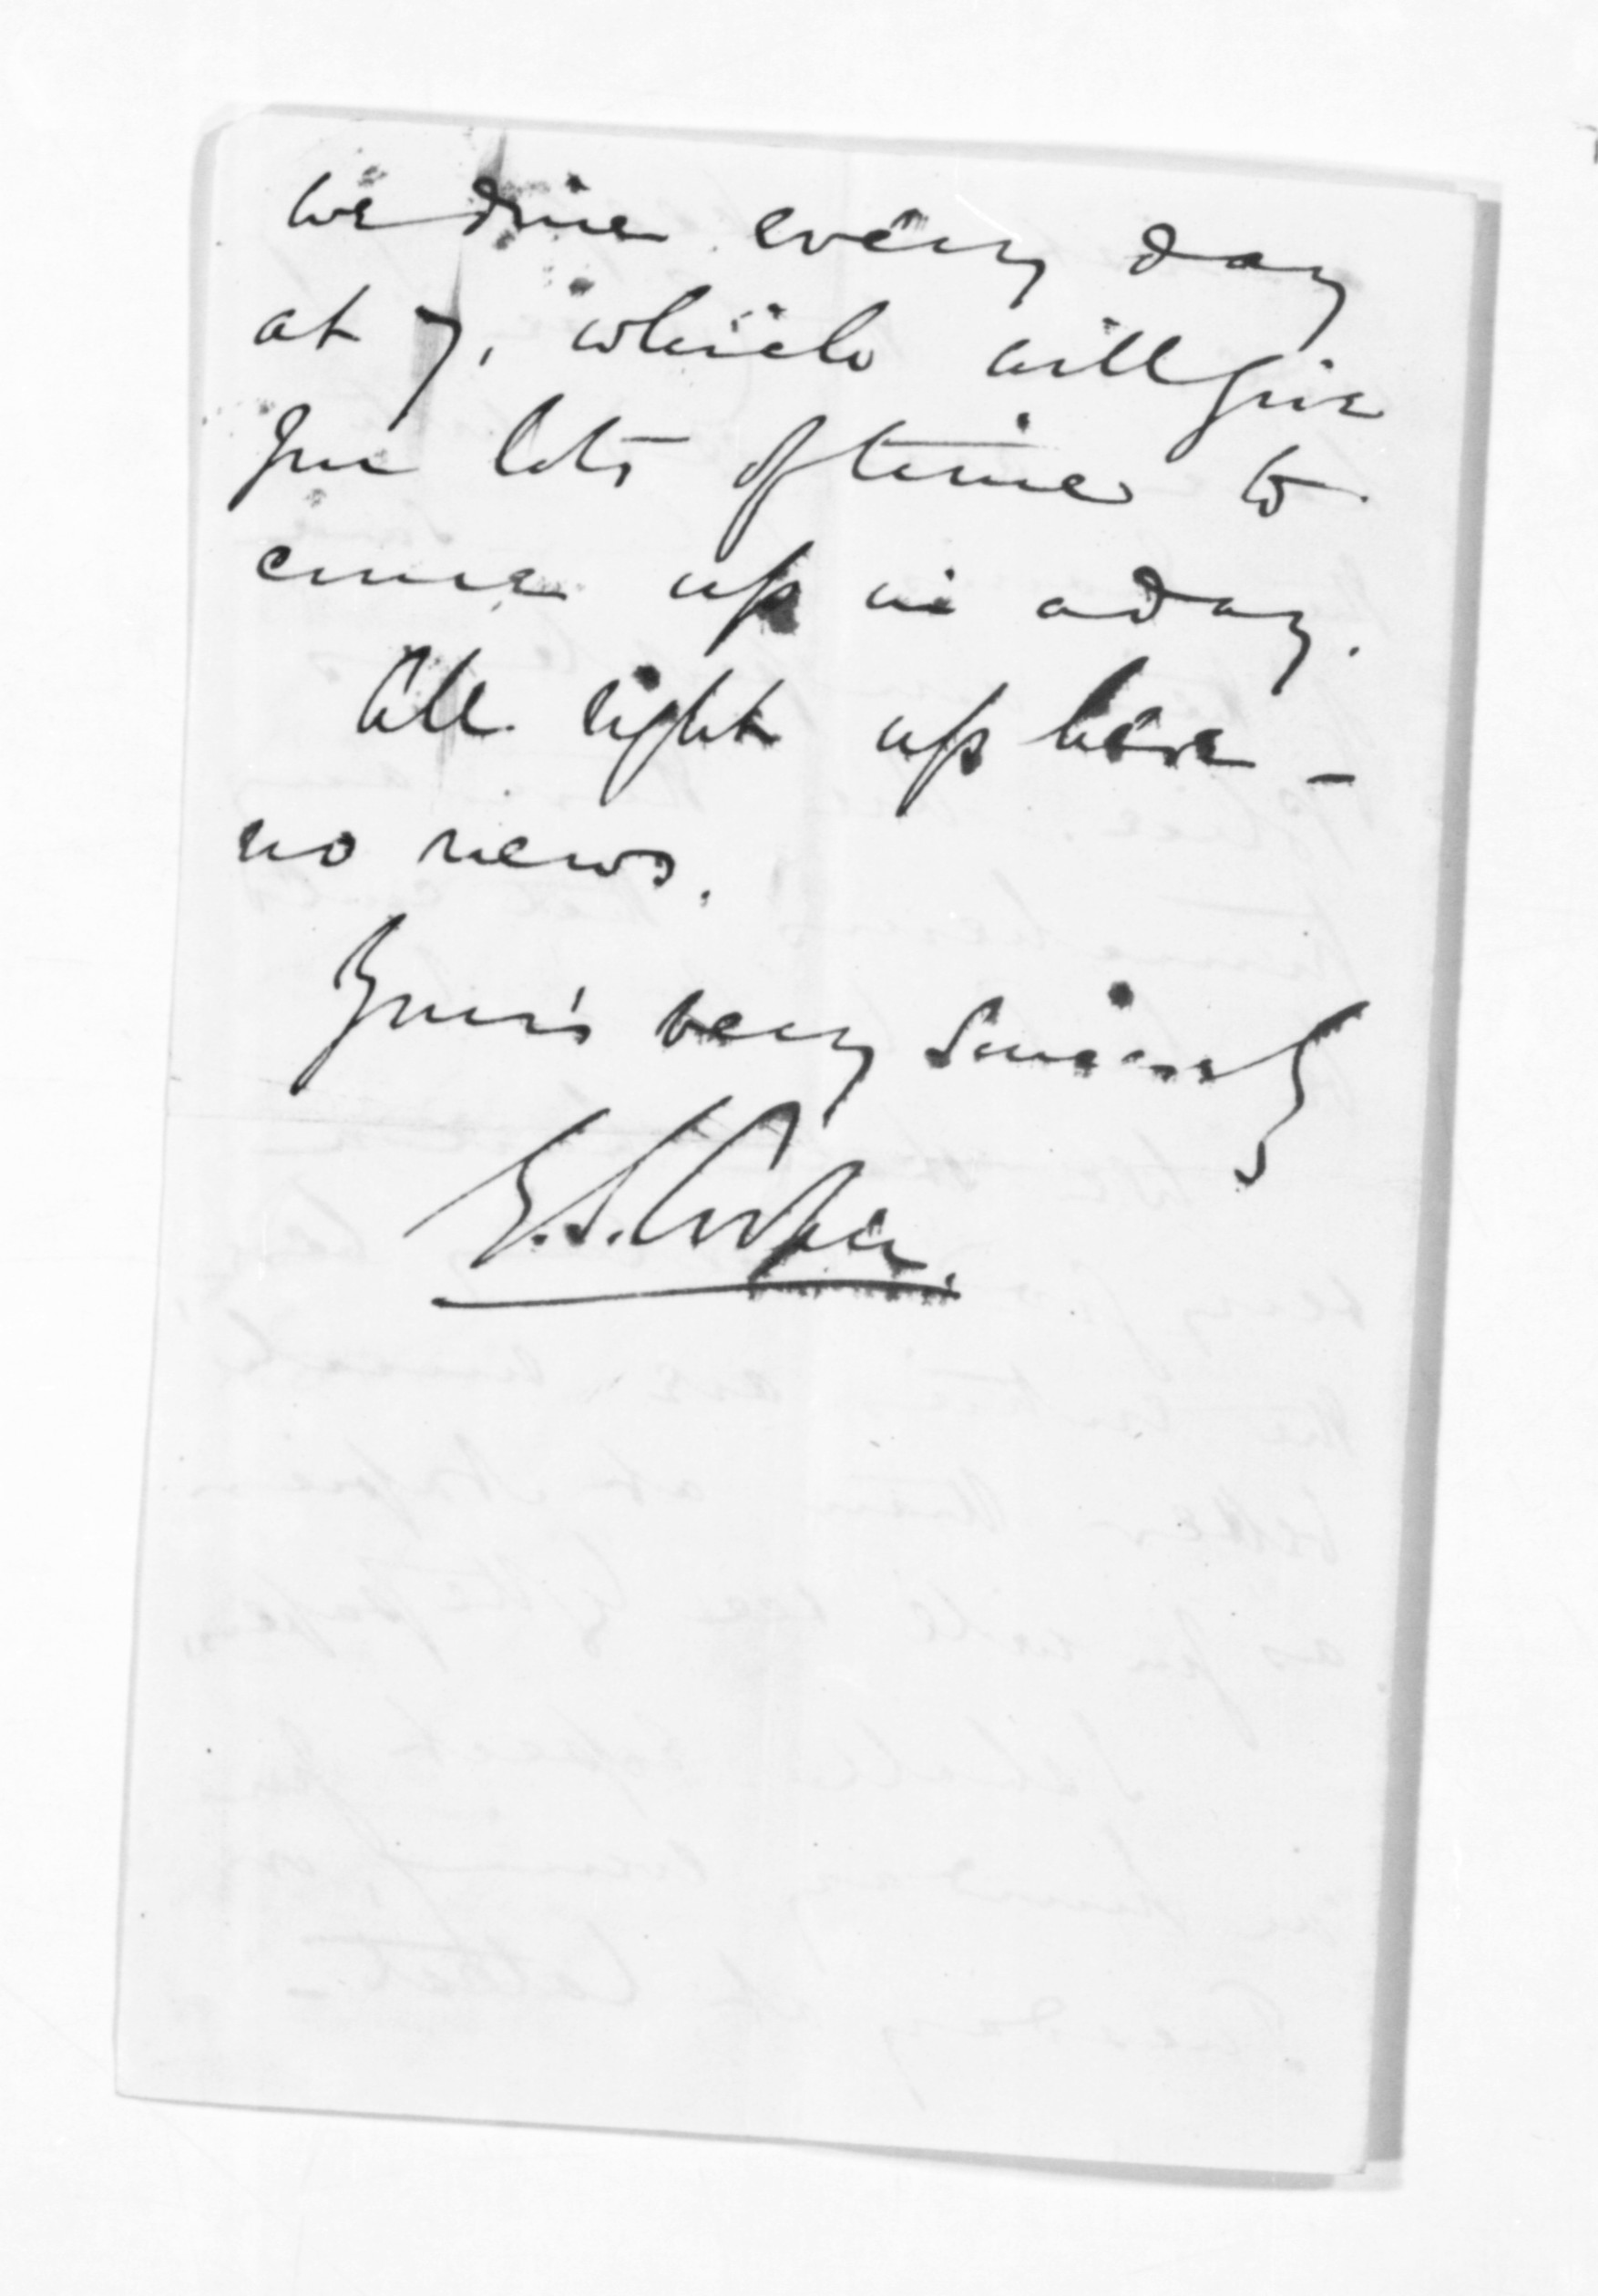 we dine every day
at 7, which will give
you lots of time to
come up in a day.
All right up here -
no news.
Your's very sincerely
G. S. Cooper.